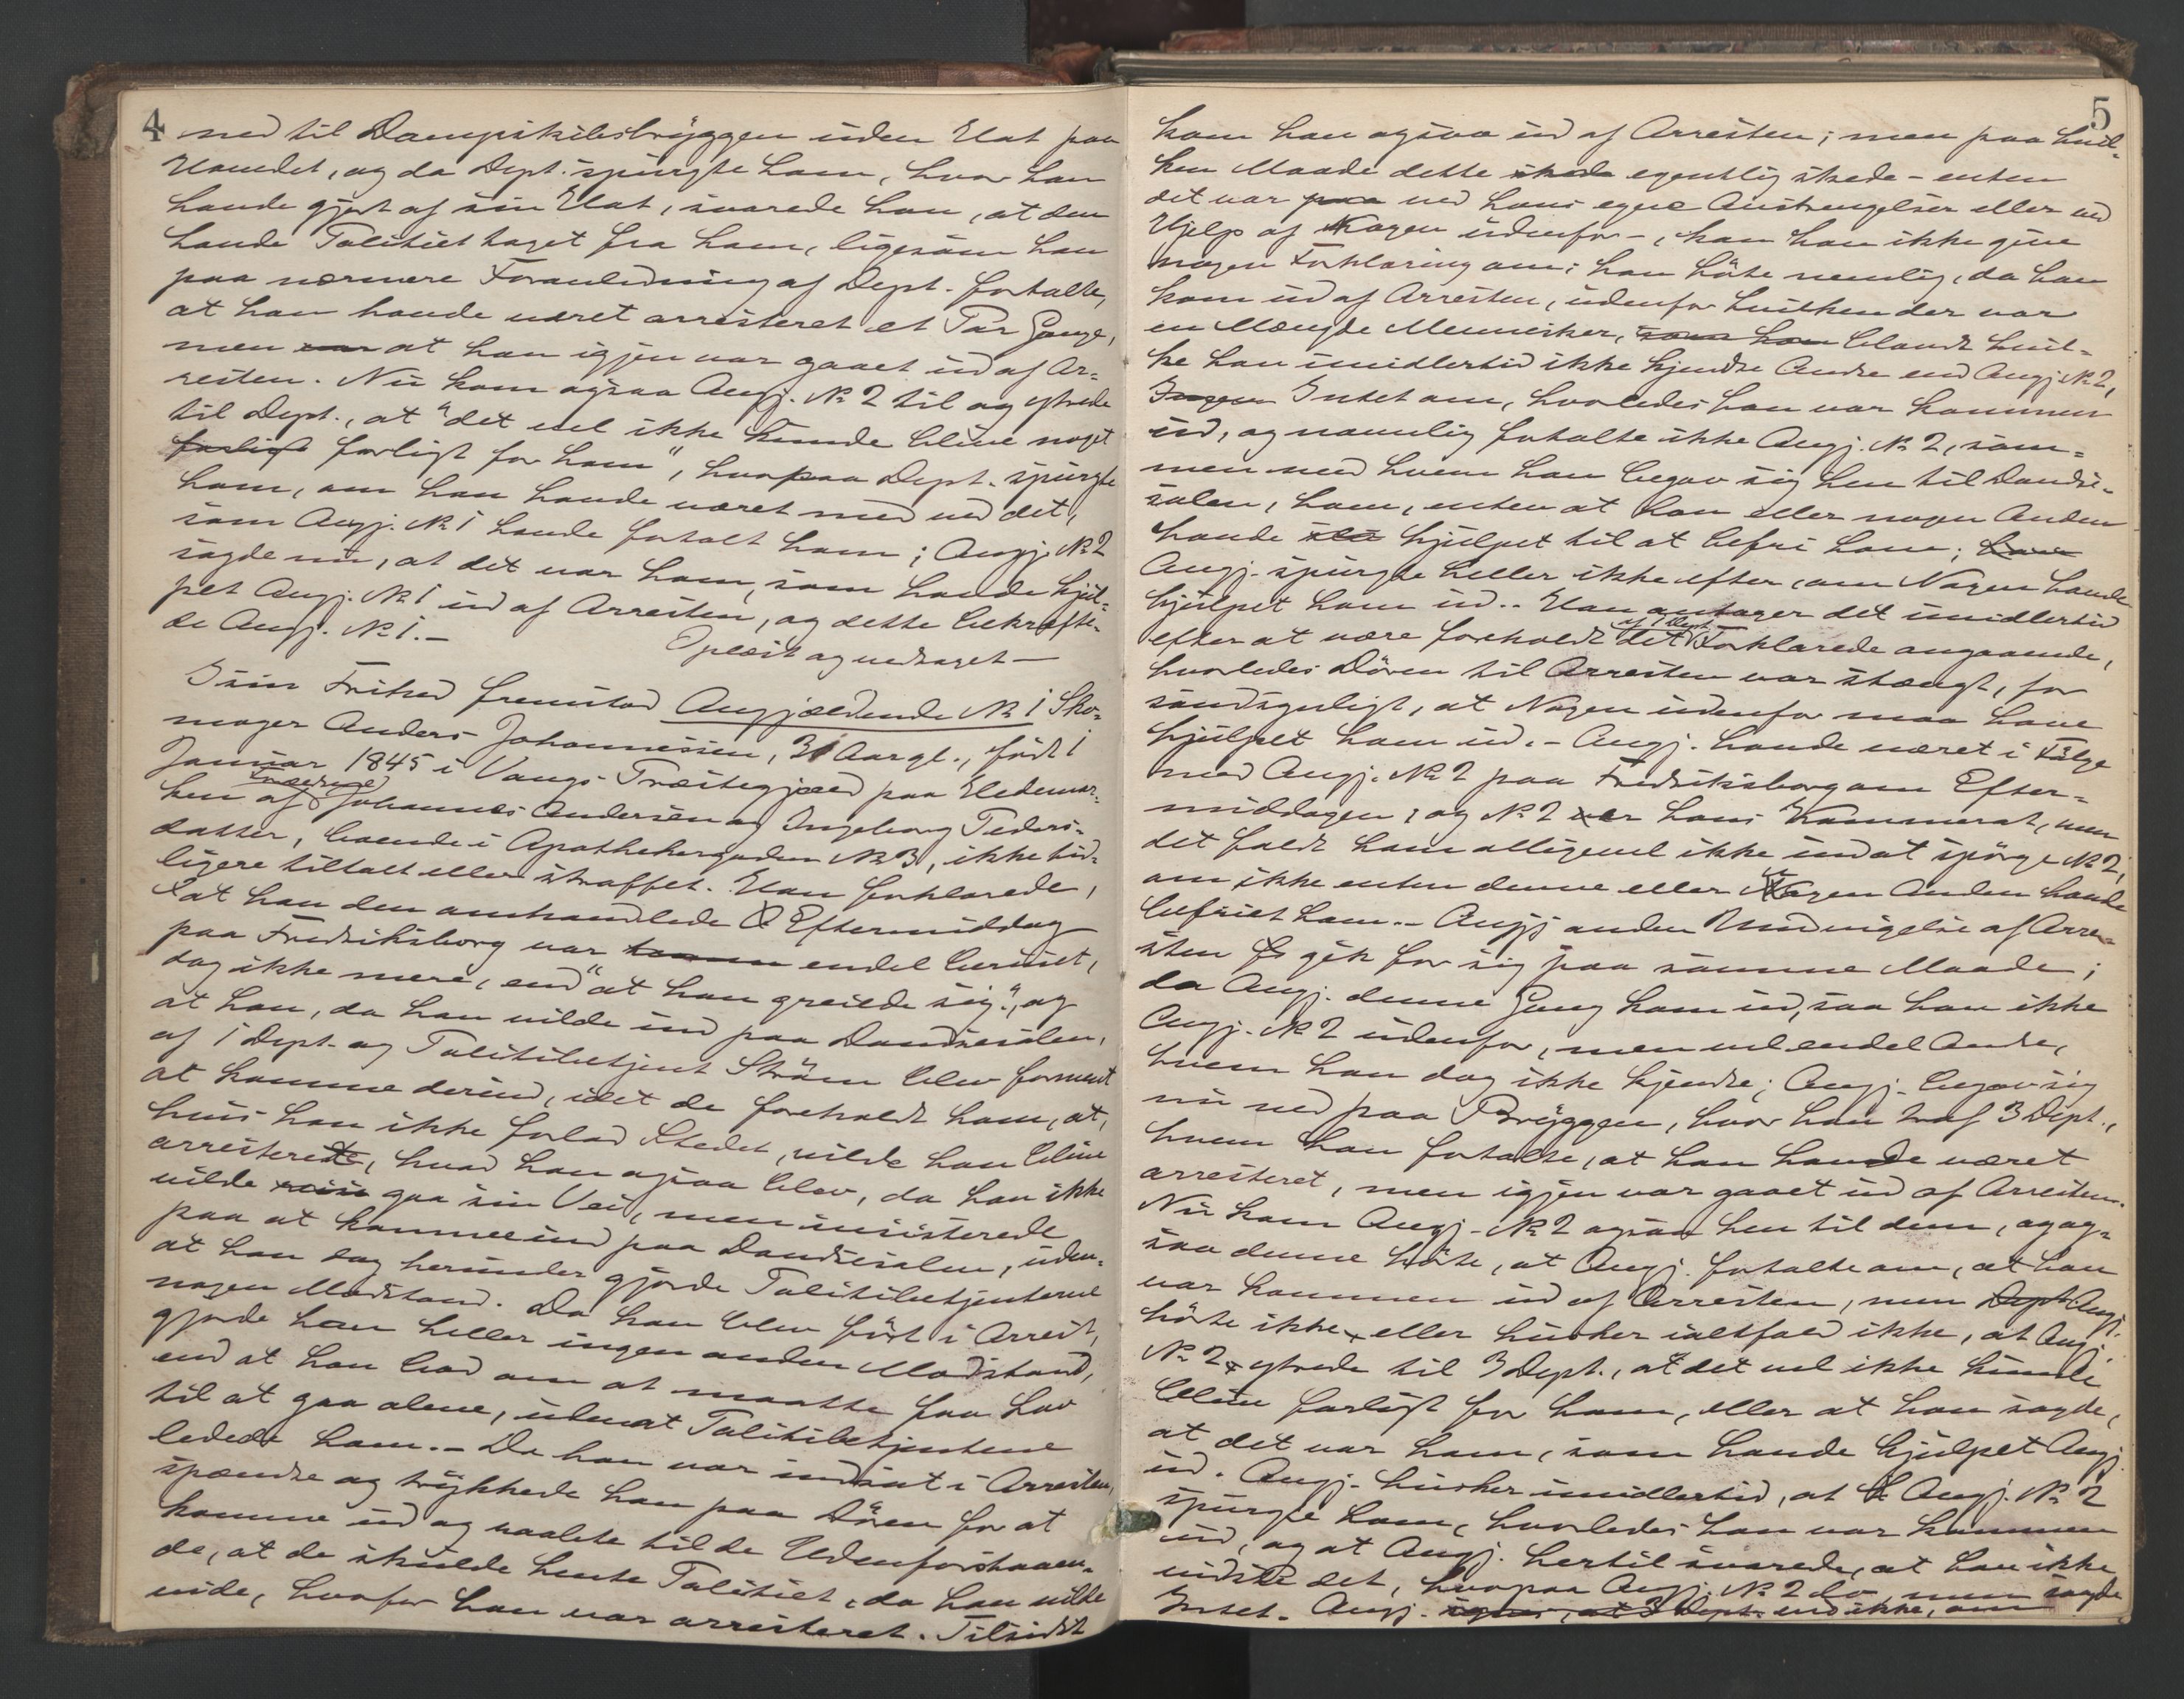 4
ned til Dampskibsbryggen uden Hat paa
Hovedet, og da Dept. spurgte ham, hvor han
havde gjort af sin Hat, svarede han, at den
havde Politiet taget fra ham, ligesom han
paa nærmere Foranledning af Dept. fortalte,
at han havde været arresteret et Par Gange,
men var at han igjen var gaaet ud af Ar-
resten. Nu kom ogsaa Angj. No 2 til og ytrede
til Dept., at "det vel ikke kunde blive noget
farligt farligt for ham", hvorpaa Dept. spurgte
ham, om han havde været med ved det,
som Angj. No 1 havde fortalt ham; Angj. No 2
sagde nu, at det var ham, som havde hjul-
pet Angj. No 1 ud af Arresten, og dette bekræfte-
de Angj. No 1.-
Oplæst og vedtaget —
I sin Frihed fremstod Angjældende No 1 Sko-
mager Anders Johannesen, 31 Aar gl., født 1
Januar 1845 i Vangs Præstegjæld paa Hedemar-
ken af Johannes Andersen og Ingeborg Peders-
datter, boende i Apothekergaden No 3, ikke tid-
ligere tiltalt eller straffet. Han forklarede,
at han den omhandlede Eftermiddag
paa Fredriksborg var endel beruset,
dog ikke mere, end "at han greiede sig", og
at han, da han vilde ind paa Dandsesalen,
af 1 Dept. og Politibetjent Strøm blev forment
at komme derind, idet de foreholdt ham, at,
hvis han ikke forlod Stedet, vilde han blive
arresteret, hvad han ogsaa blev, da han ikke
vilde gaa sin Vei, men insisterede
paa at komme ind paa Dandsesalen, uden-
at han dog herunder gjorde Politibetjentene
nogen Modstand. Da han blev ført i Arrest,
gjorde han heller ingen anden Modstand,
end at han bad om at maatte faa Lov
til at gaa alene, udenat Politibetjentene
ledede ham.- Da han var indsat i Arresten,
spændte og trykkede han paa Døren for at
komme ud og raabte til de Udenforstaaen-
de, at de skulde hente Politiet, da han vilde
vide, hvorfor han var arresteret. Tilsidst
5
kom han ogsaa ud af Arresten; men paa hvil-
ken Maade dette skede egentlig skede - enten
det var paa ved hans egne Anstrengelser eller ved
Hjelp af Nogen udenfor -, kan han ikke give
nogen Forklaring om; han hørte nemlig, da han
kom ud af Arresten, udenfor hvilken der var
en Mængde Mennesker, som han blandt hvil-
ke han imidlertid ikke kjendte Andre end Angj. No 2,
Ingen Intet om, hvorledes han var kommen
ud, og navnlig fortalte ikke Angj. No 2, sam-
men med hvem han begav sig hen til Dandse-
salen, ham, enten at han eller nogen Anden
havde hjulpet til at befri ham;
Angj. spurgte heller ikke efter, om Nogen havde
hjulpet ham ud.- Han antager det imidlertid
efter at være foreholdt det af 1 Dept. Forklarede angaaende,
hvorledes Døren til Arresten var stængt, for
sandsynligt, at Nogen udenfor maa have
hjulpet ham ud.- Angj. havde været i Følge
med Angj. No 2 paa Fredriksborg om Efter-
middagen, og No 2 er hans Kammerat, men
det faldt ham alligevel ikke ind at spørge No 2,
om ikke enten denne eller Nogen Anden havde
befriet ham.- Angjs anden Undvigelse af Arre-
sten gik for sig paa samme Maade;
da Angj. denne Gang kom ud, saa han ikke
Angj. No 2 udenfor, men vel endel Andre,
hvem han dog ikke kjendte; Angj. begav sig
nu ned paa Bryggen, hvor han traf 3 Dept.,
hvem han fortalte, at han havde været
arresteret, men igjen var gaaet ud af Arresten.
Nu kom Angj. No 2 ogsaa hen til dem, og og-
saa denne hørte, at Angj. fortalte om, at han
var kommen ud af Arresten, men Dept. Angj.
hørte ikke, eller husker ialtfald ikke, at Angj.
No 2 ytrede til 3 Dept., at det vel ikke kunde
blive farligt for ham, eller at han sagde,
at det var ham, som havde hjulpet Angj.
ud. Angj. husker imidlertid, at Angj. No 2
spurgte ham, hvorledes han var kommen
ud, og at Angj. hertil svarede, at han ikke
vidste det, hvorpaa Angj. No 2 lo, men sagde
Intet. Angj. at 3 Dept. ved ikke, om